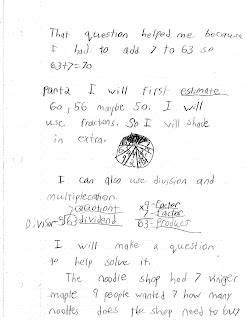 That question helped me because
I had to add 7 to 63 so
63+7=70
part2 I will first estimate
60, 56 maybe 50. I will
use fractions. So I will shade
in extra.
I can also use division and
multiplecation.
7 quotient
Divisor-9)63 dividend
x9-factor
7-factor
63-product
I will make a question
to help solve it.
The noodle shop had 7
maple 9 people wanted 7 how many
noodles does the shop need to buy